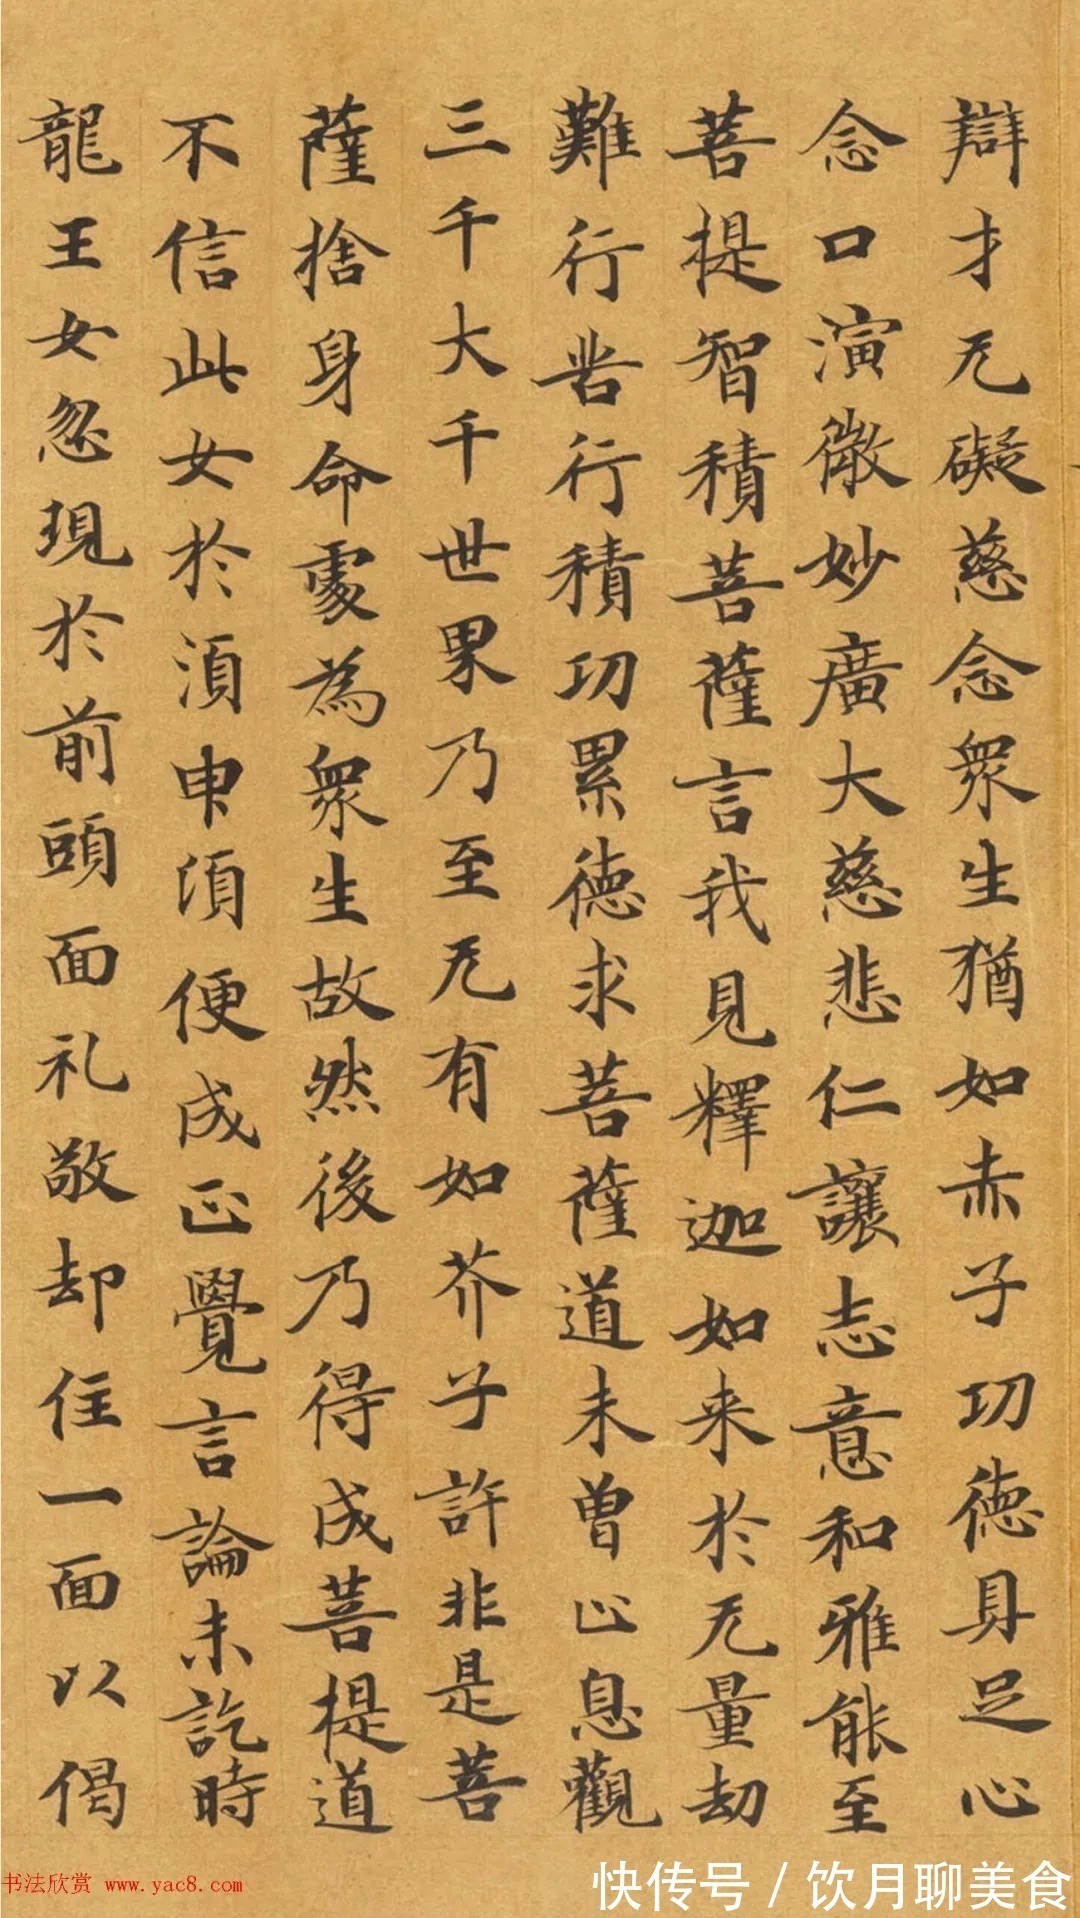 辯才无礙慈念衆生猶如赤子功德具足心
念口演微妙廣大慈悲仁讓志意和雅能至
菩提智積菩薩言我見釋迦如来於无量劫
難行苦行積功累德求菩薩道未曾止息觀
三千大千世界乃至无有如芥子許非是菩
薩捨身命處為衆生故然後乃得成菩提道
不信此女於須申須便成正覺言論未訖時
龍王女忽現於前頭面礼敬却住一面以偈
书法欣赏 www.yac8.com
快传号/饮月聊美食